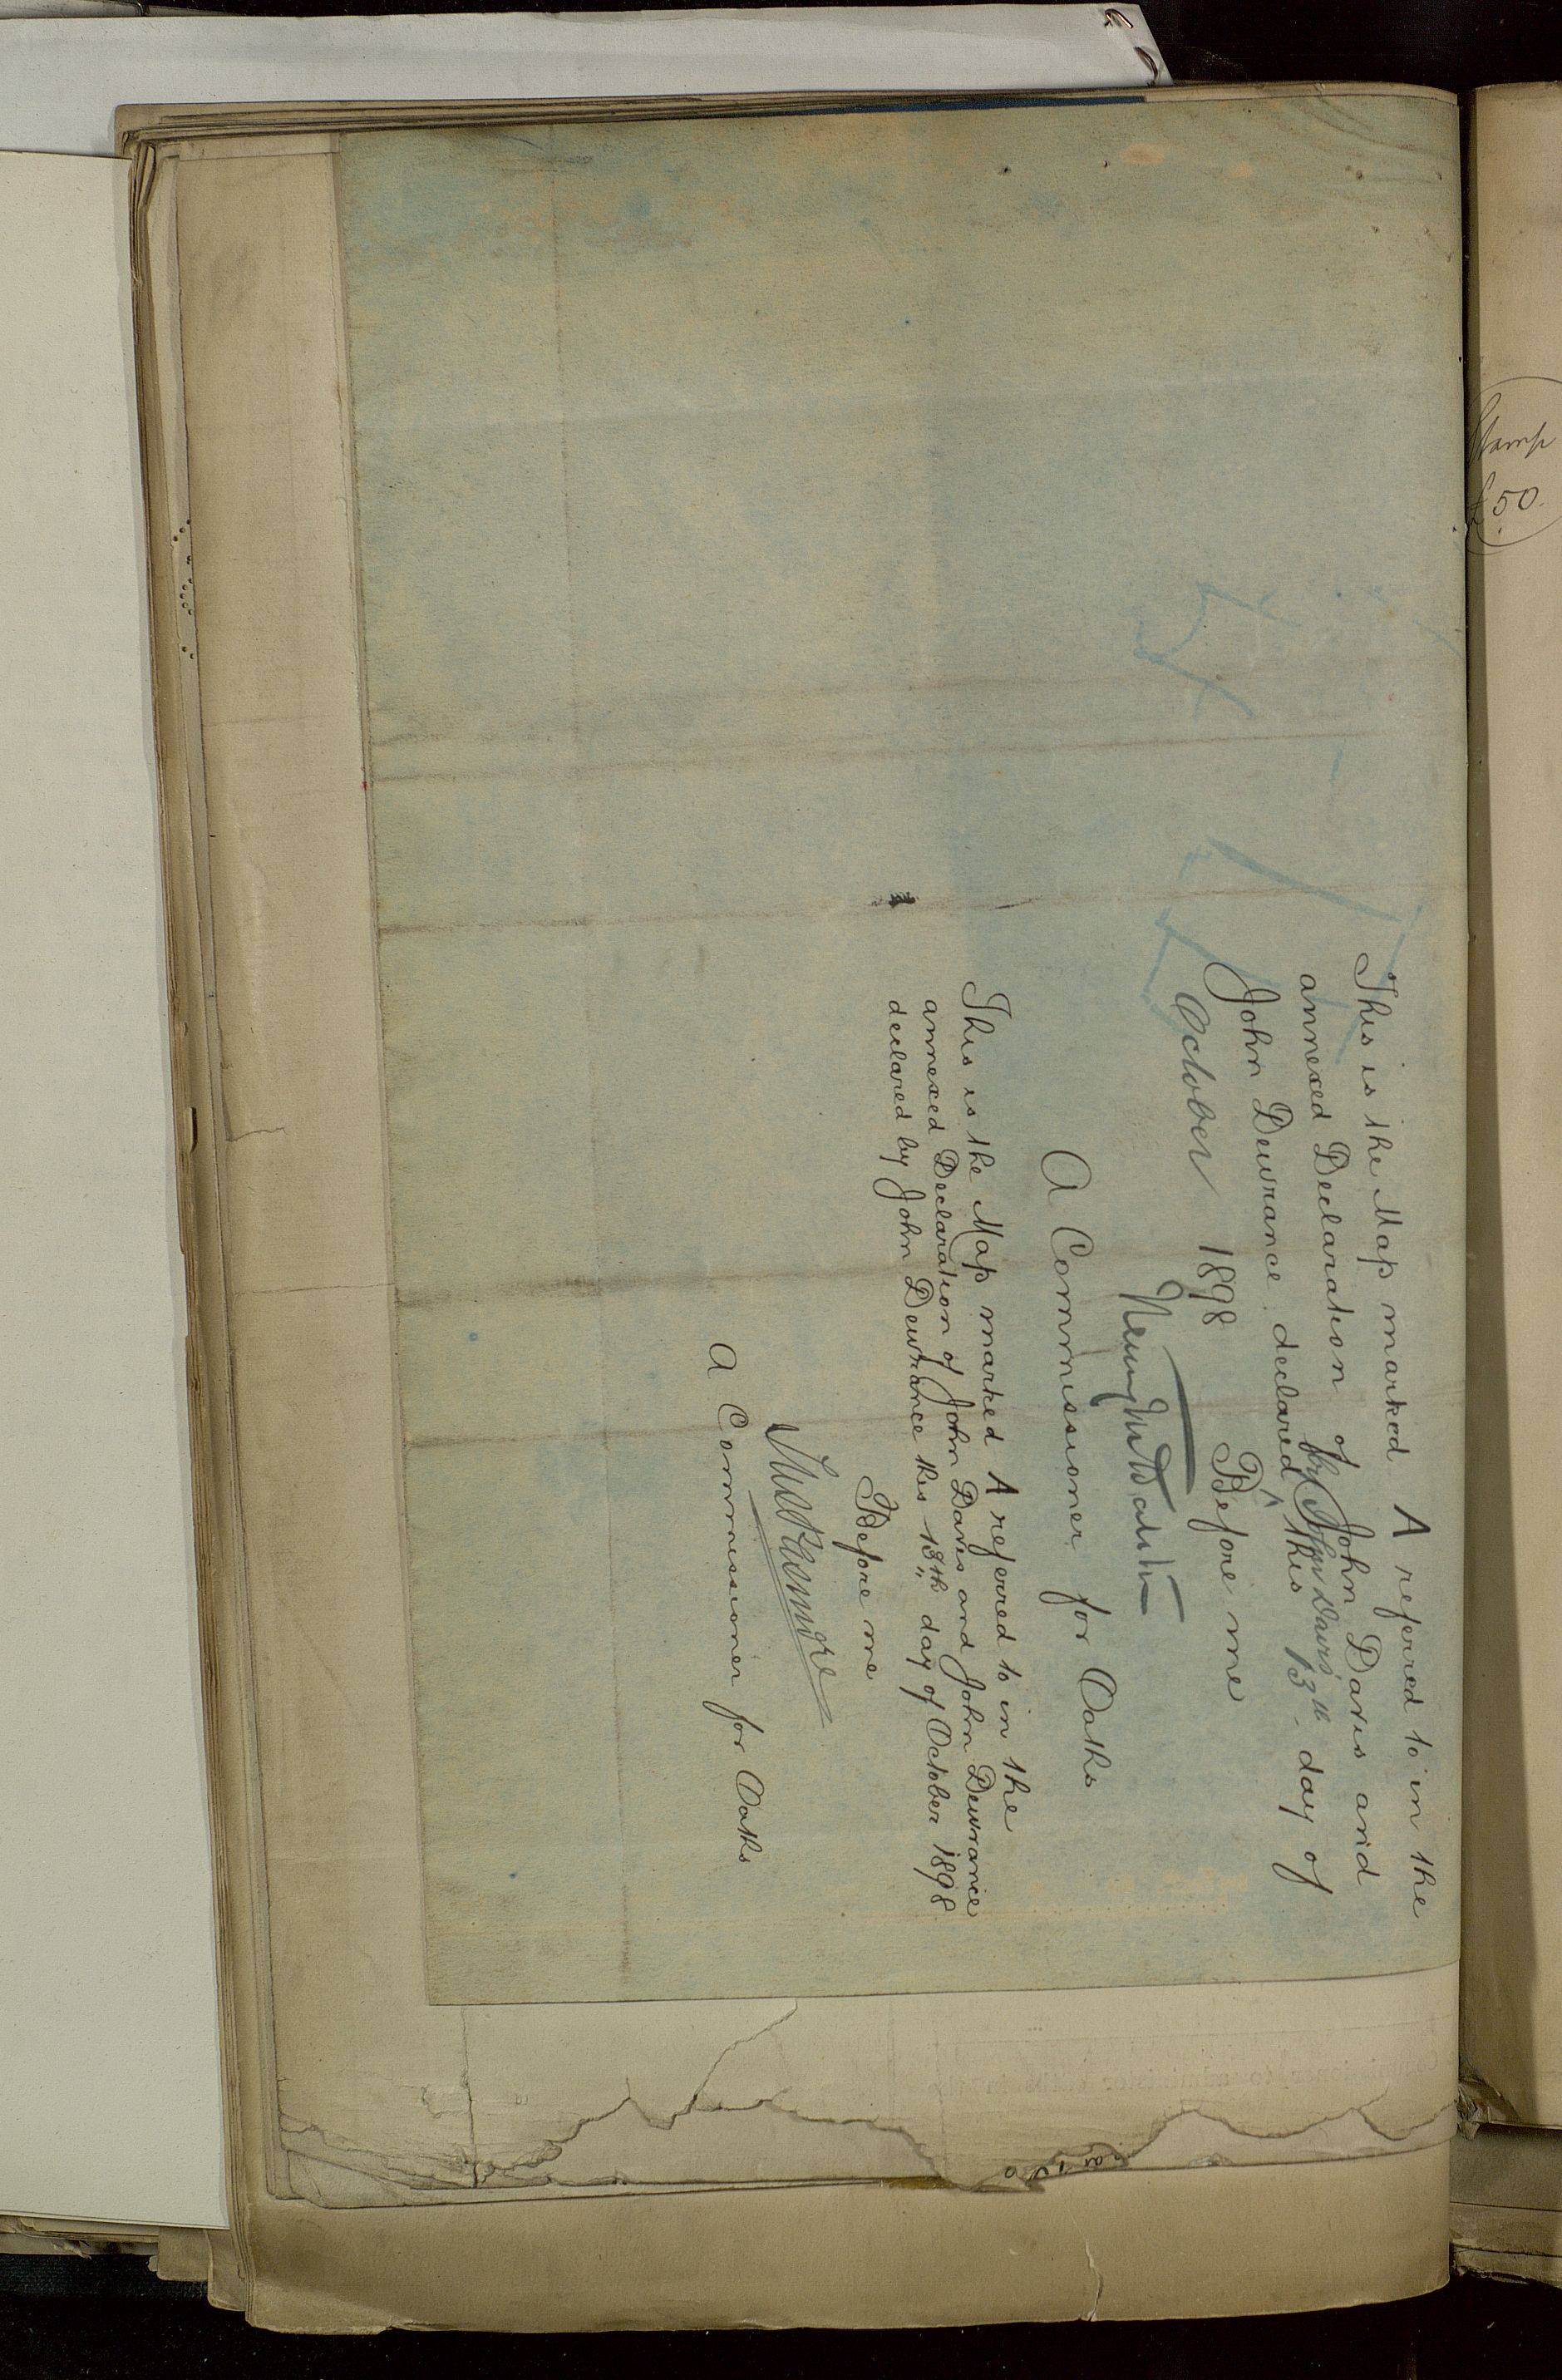 This is the Map marked A referred to in the
annexed Declaration of John Davis and
by John Davis
John Dewrance declared ^ this 13th day of
October 1898
Before me
A Commissioner for Oaths
This is the Map marked A referred to in the
annexed Declaration of John Davis and John Dewrance
declared by John Dewrance this 13th day of October 1898
Before me
A Commissioner for Oaths
Stamp
£50.